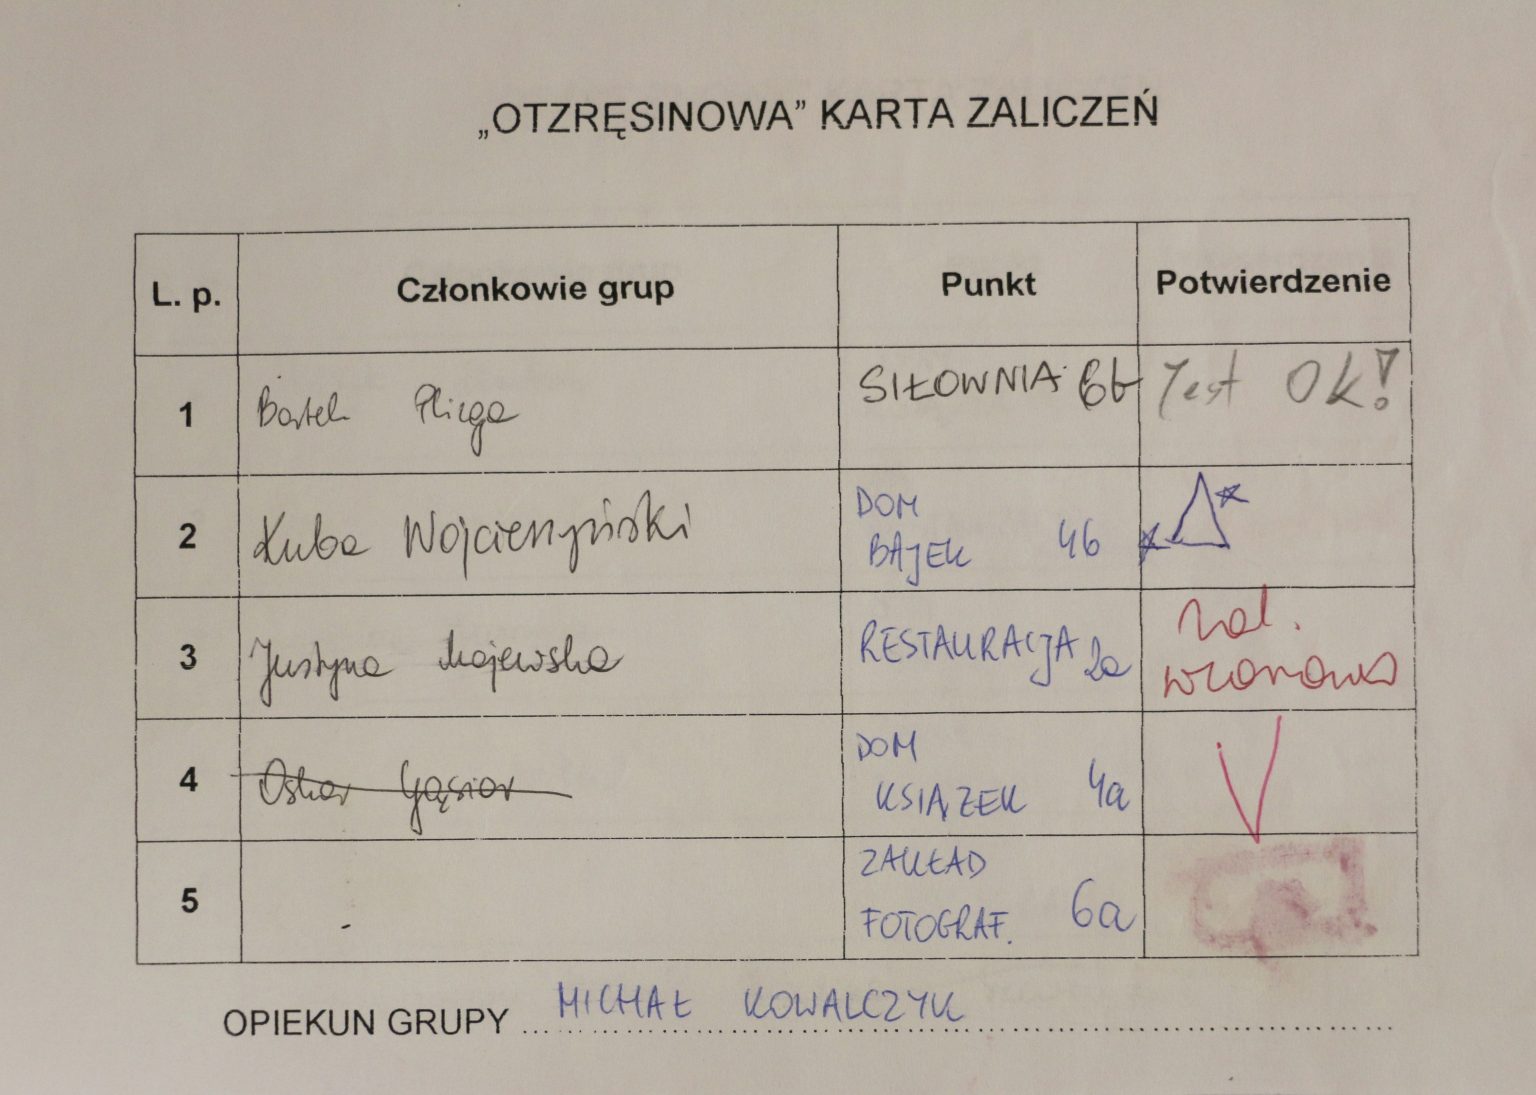 „OTZRĘSINOWA” KARTA ZALICZEŃ
L. p. Członkowie grup Punkt Potwierdzenie
1 Bartek Pliega SIŁOWNIA 6b Jest OK!
2 Kuba DOM BAJEK 4b
3 Justyna Majewska RESTAURACJA 2a zal.
4 Oskar Gąsior DOM KSIĄŻEK 4a
5 ZAKŁAD FOTOGRAF. 6a
OPIEKUN GRUPY MICHAŁ KOWALCZYK